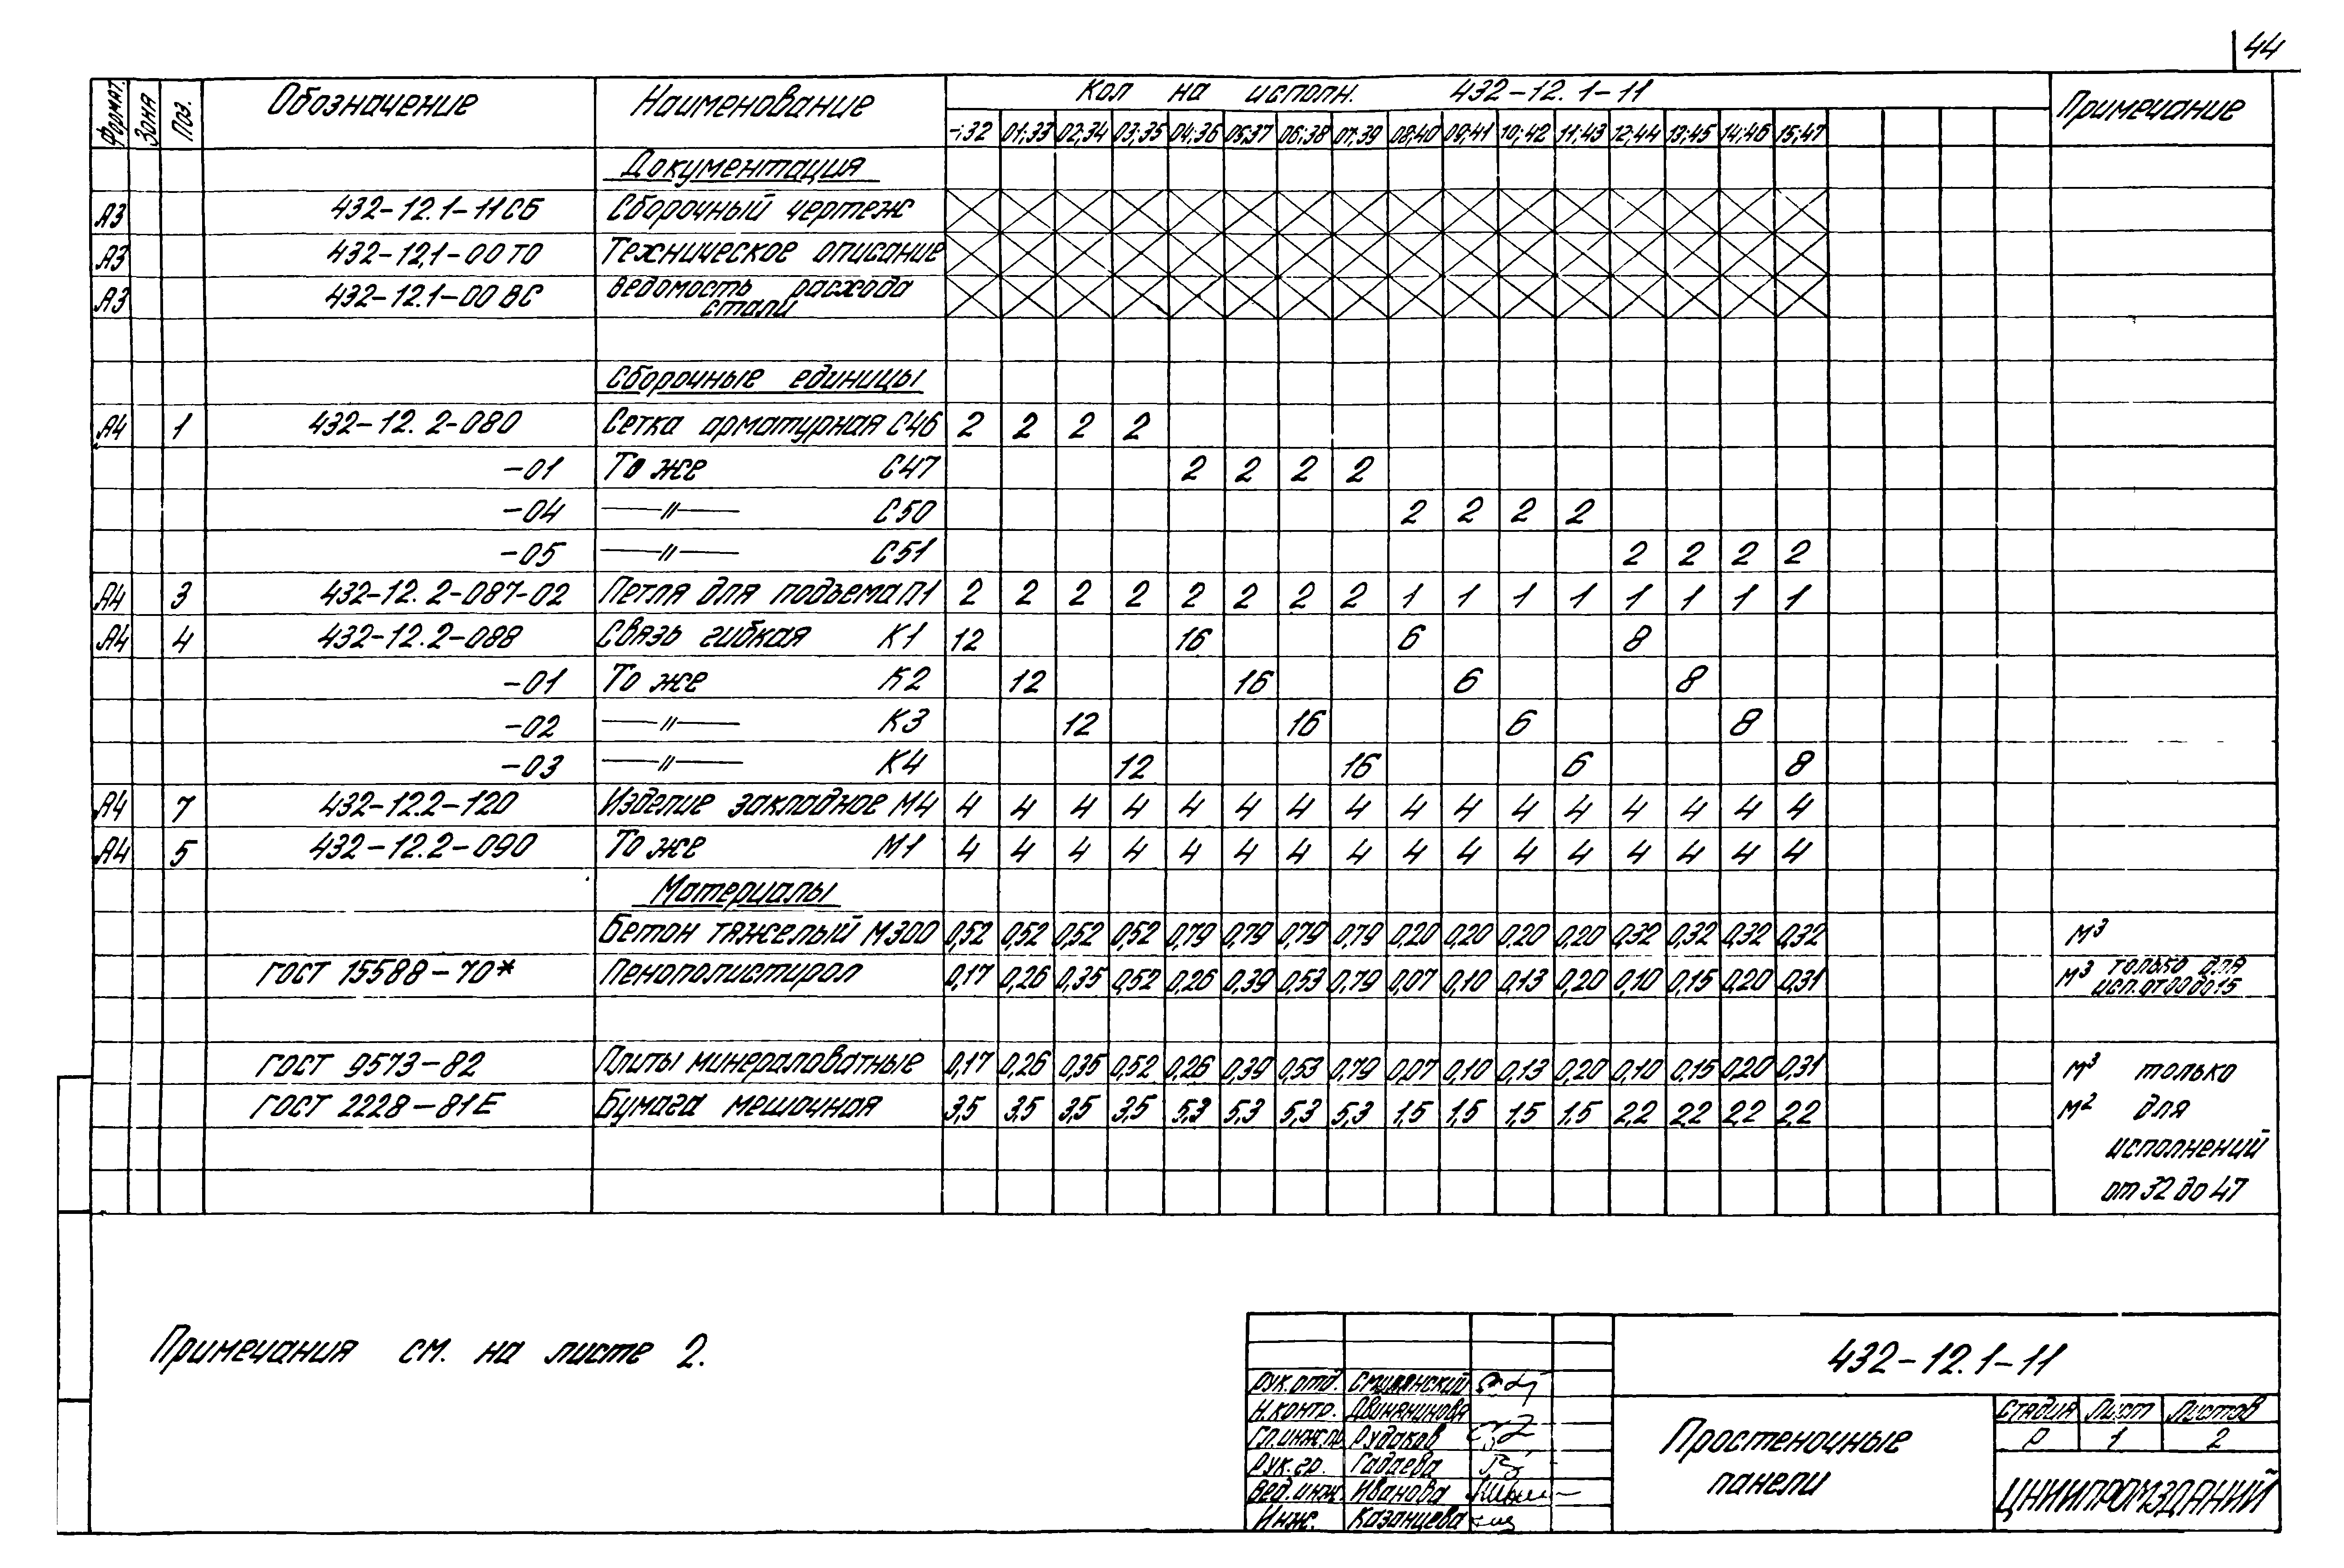 44
Формат. Зона Поз. Обозначение Наименование Кол на исполн. 432-12.1-11 Примечание
-;32 01;33 02;34 03;35 04;36 05;37 06;38 07;39 08;40 09;41 10;42 11;43 12;44 13;45 14;46 15;47
Документация
А3 432-12.1-11СБ Сборочный чертеж
А3 432-12,1-00ТО Техническое описание
А3 432-12.1-00ВС Ведомость расхода
стали
Сборочные единицы
А4 1 432-12.2-080 Сетка арматурная С46 2 2 2 2
-01 То же С47 2 2 2 2
-04 —〃— С50 2 2 2 2
-05 —〃— С51 2 2 2 2
А4 3 432-12.2-087-02 Петля для подъема П1 2 2 2 2 2 2 2 2 1 1 1 1 1 1 1 1
А4 4 432-12.2-088 Связь гибкая К1 12 16 6 8
-01 То же К2 12 16 6 8
-02 —〃— К3 12 16 6 8
-03 —〃— К4 12 16 6 8
А4 7 432-12.2-120 Изделие закладное М4 4 4 4 4 4 4 4 4 4 4 4 4 4 4 4 4
А4 5 432-12.2-090 То же М1 4 4 4 4 4 4 4 4 4 4 4 4 4 4 4 4
Материалы
Бетон тяжелый М300 0,52 0,52 0,52 0,52 0,79 0,79 0,79 0,79 0,20 0,20 0,20 0,20 0,32 0,32 0,32 0,32 м³
ГОСТ 15588-70* Пенополистирол 0,17 0,26 0,35 0,52 0,26 0,39 0,53 0,79 0,07 0,10 0,13 0,20 0,10 0,15 0,20 0,31 м³ только для
исп. от 00 до 15
ГОСТ 9573-82 Плиты минераловатные 0,17 0,26 0,35 0,52 0,26 0,39 0,53 0,79 0,07 0,10 0,13 0,20 0,10 0,15 0,20 0,31 м³ только
ГОСТ 2228-81Е Бумага мешочная 3,5 3,5 3,5 3,5 5,3 5,3 5,3 5,3 1,5 1,5 1,5 1,5 2,2 2,2 2,2 2,2 м² для
исполнений
от 32 до 47
Примечания см. на листе 2.
432-12.1-11
Рук.отд. Смилянский
Н.контр. Двинянинова
Гл.инж.пр. Рудаков
Рук.гр. Гадаева
Вед.инж. Иванова
Инж. Казанцева
Простеночные
панели
Стадия Лист Листов
Р 1 2
ЦНИИПРОМЗДАНИЙ